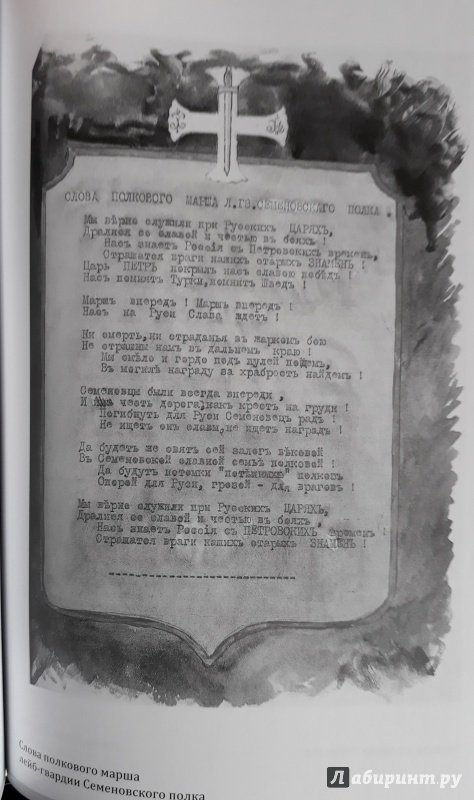 СЛОВА ПОЛКОВОГО МАРША Л.ГВ.СЕМЕНОВСКАГО ПОЛКА
Мы вѣрно служили при Русскихъ ЦАРЯХЪ,
Дрались со славой и честью въ бояхъ !
Насъ знаетъ Россія съ Петровскихъ временъ,
Страшатся враги нашихъ старыхъ ЗНАМЕНЪ !
Царь ПЕТРЪ покрылъ насъ славою побѣдъ !
Насъ помнятъ Турки, помнитъ Шведъ !
Маршъ впередъ ! Маршъ впередъ !
Насъ на Руси Слава ждетъ !
Ни смерть, ни страданья въ жаркомъ бою
Не страшны намъ въ дальнемъ краю !
Мы смѣло и гордо подъ пулей поемъ,
Въ могилѣ награду за храбрость найдемъ !
Семеновцы были всегда впереди ,
И имъ честь дорога, какъ крестъ на груди !
Погибнуть для Руси Семеновецъ радъ !
Не ищетъ онъ славы, не ищетъ наградъ !
Да будетъ же святъ сей залогъ вѣковой
Въ Семеновской славной семьѣ полковой !
Да будутъ потомки "потѣшныхъ" полковъ
Опорой для Руси, грозой - для враговъ !
Мы вѣрно служили при Русскихъ ЦАРЯХЪ,
Дрались со славой и честью въ бояхъ ,
Насъ знаетъ Россія съ ПЕТРОВСКИХЪ временъ !
Страшатся враги нашихъ старыхъ ЗНАМЕНЪ !
Слова полкового марша
лейб-гвардии Семеновского полка
Лабиринт.ру